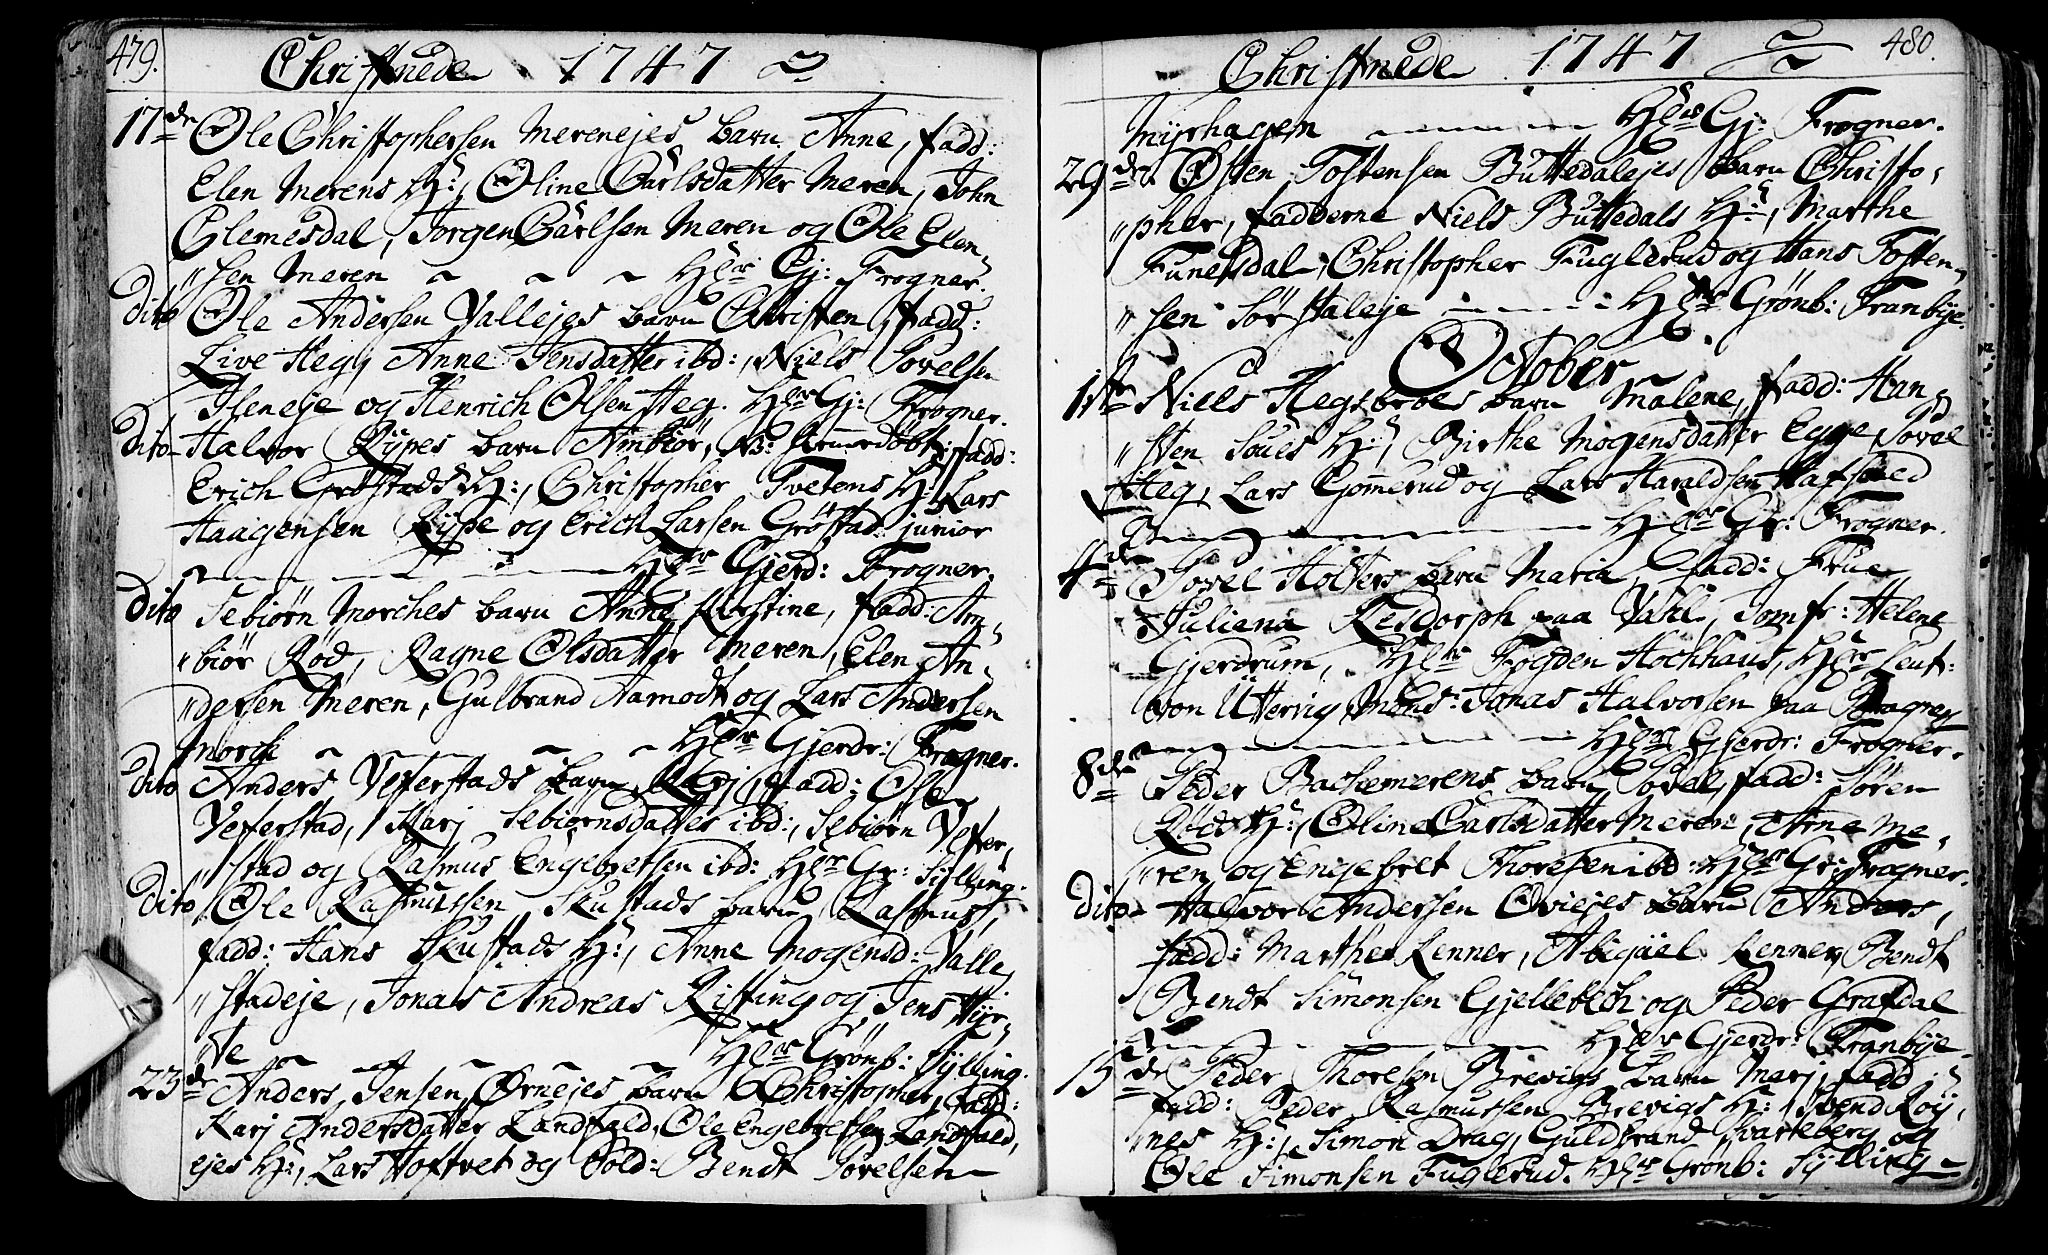 479.
Christnede 1747
17de Ole Christophersen Merenejes barn Anne, fadd:
Elen Merens H:, Oline Carlsdatter Meren, John
Glemesdal, Jørgen Carlsen Meren og Ole Elen-
"sen Meren Hr Gj: Frogner.
Dito Ole Andersen Vallejes barn Christen, fadd:
Live Heg, Anne Jensdatter ibd:, Niels Sorelsen
eje og Henrich Olsen Heg. Hr Gj: Frogner.
Dito Halvor Rypes barn Ambiør, fadd:
Erich Grøstads H:, Christopher Tvetens H:, Lars
Haagensen Rype og Erich Larsen Grøstad junior
Hr Gjerd: Frogner.
Dito Sebiørn Morches barn Anne Kirstine, fadd: Am-
"biør Rød, Ragne Olsdatter Meren, Elen An-
"dersen Meren, Gulbrand Aamodt og Lars Andersen
Morch Hr Gjerdr: Frogner.
Dito Anders Vefferstads barn Karj, fadd: Ole
Vefferstad, Karj Sebiørnsdatter ibd:, Sebiørn Veffer-
"stad og Rasmus Engebretsen ibd: Hr Gr: Sylling.
Dito Ole Rasmussen Skustads barn Rasmus,
fadd: Hans Skustads H:, Anne Mogensd: Valle
"stadeje, Jonas Andreas og Jens Hyr-
"te Hr Grønb: Sylling.
23de Anders Jensen Ørnejes barn Christopher, fadd:
Karj Andersdatter Landfald, Ole Engebretsen Landfald,
ejes H:, Lars Hoftvet og Sold: Bendt Sorelsen
480.
Christnede 1747
Myrhagen Hr Gj: Frogner.
29de Østen Tostensen Buttedalejes barn Christo-
"pher, fadderne Niels Buttedals H:, Marthe
Funelsdal, Christopher Fuglerud og Hans Tosten-
"sen Sørstaleje Hr Grønb: Tranbye.
October
1ste Niels Hegsbroes barn Malene, fadd: Han
"sten H:, Birthe Mogensdatter Egge, Povel
Heg, Lars Gomerud og Lars Haraldsen
Hr Gr: Frogner.
4de Povel Holters barn Maria, fadd: Frue
Juliena Resdorph paa Vahl, Jomfr: Helene
Gjerdrum, Hr Fogden Hochhaus, Hr Leut:
von Uttervig, Mons: Jonas Halvorsen paa Bragnes
Hr Gjerdr: Frogner.
8de Peder Bachemerens barn Povel, fadd: Sören
Røds H:, Oline Carlsdatter Meren, Arne Me-
"ren og Engebret Thoresen ibd: Hr Gr: Frogner.
Dito Halvor Andersen Oviejes barn Anders,
fadd: Marthe Lenner, Abigael Lenner, Bendt
Bendt Simonsen Gjellebech og Peder Grafdal
Hr Gjerdr: Tranbye.
15de Peder Thoresen Brevigs barn Marj, fadd:
fadd: Peder Rasmussen Brevigs H:, Svend Røy-
"nes H:, Simon Drag, Guldbrand Svarteberg og
Ole Simonsen Fuglerud. Hr Grønb: Sylling